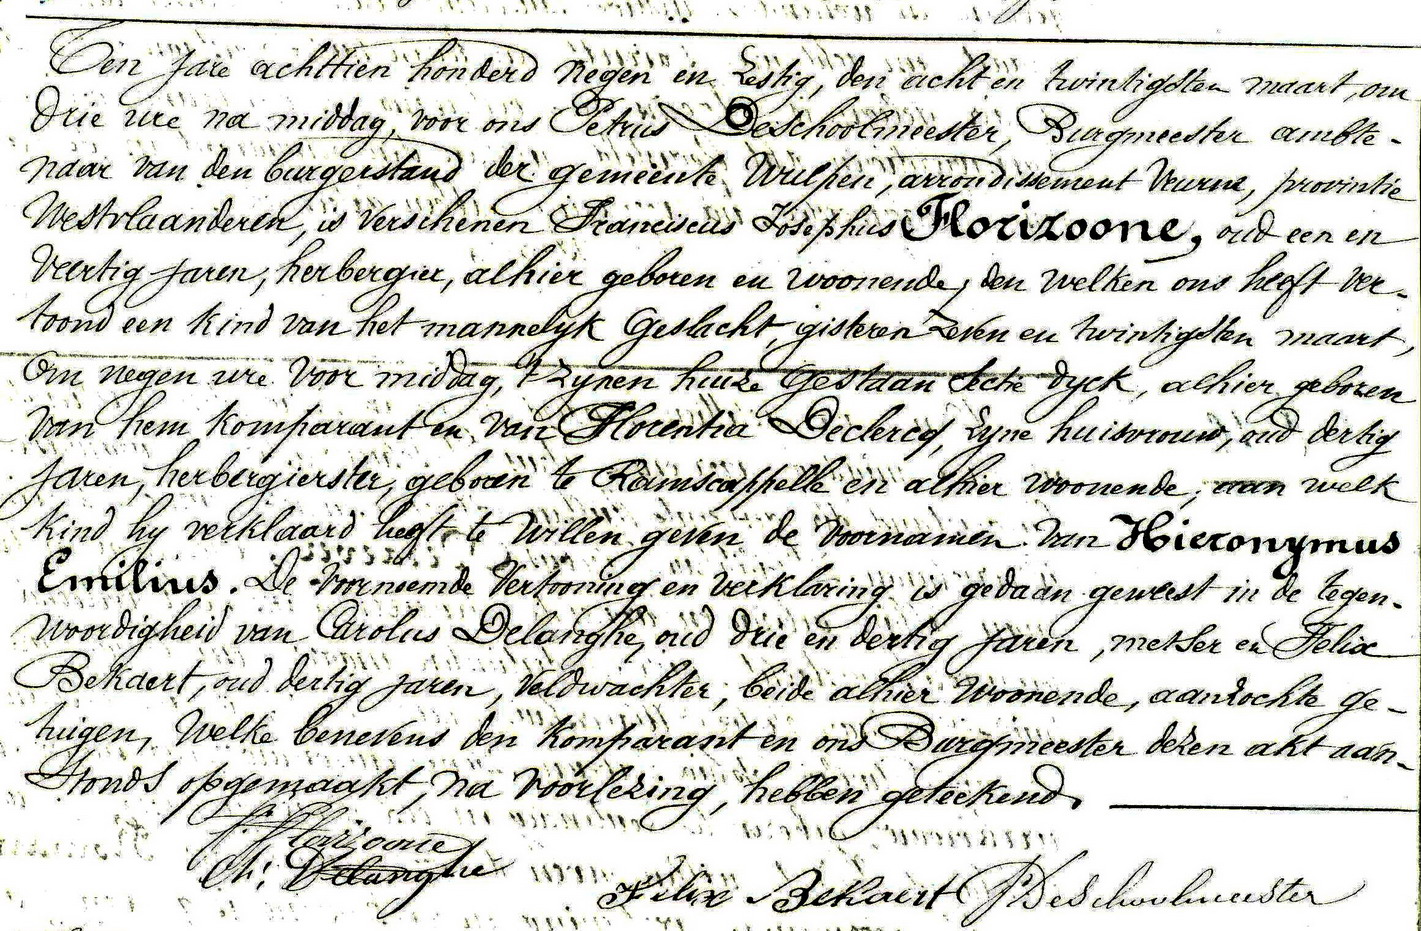 Ten jare achttien honderd negen en zestig, den acht en twintigsten maart, om
drie ure na middag, voor ons Petrus Deschoolmeester, Burgmeester ambte-
naar van den burgerstand der gemeente Wulpen, arrondissement Veurne, provintie
Westvlaanderen, is verschenen Franciscus Josephus Florizoone, oud een en
veertig jaren, herbergier, alhier geboren en woonende, den welken ons heeft ver-
toond een kind van het mannelyk geslacht, gisteren zeven en twintigsten maart,
om negen ure voor middag, t' zynen huize gestaan dyck, alhier geboren
van hem komparant en van Florentia Declercq, zyne huisvrouw, oud dertig
jaren, herbergierster, geboren te Ramscappelle en alhier woonende, aan welk
kind hy verklaard heeft te willen geven de voornamen van Hieronymus
Emilius. De voornoemde vertooning en verklaring is gedaan geweest in de tegen-
woordigheid van Carolus Delanghe, oud drie en dertig jaren, metser en Felix
Bekaert, oud dertig jaren, veldwachter, beide alhier woonende, aanzochte ge-
tuigen, welke benevens den komparant en ons Burgmeester dezen akt aan-
stonds opgemaakt, na voorlezing, hebben geteekend.
F. Florizoone
Ch. Delanghe
Felix Bekaert P. Deschoolmeester